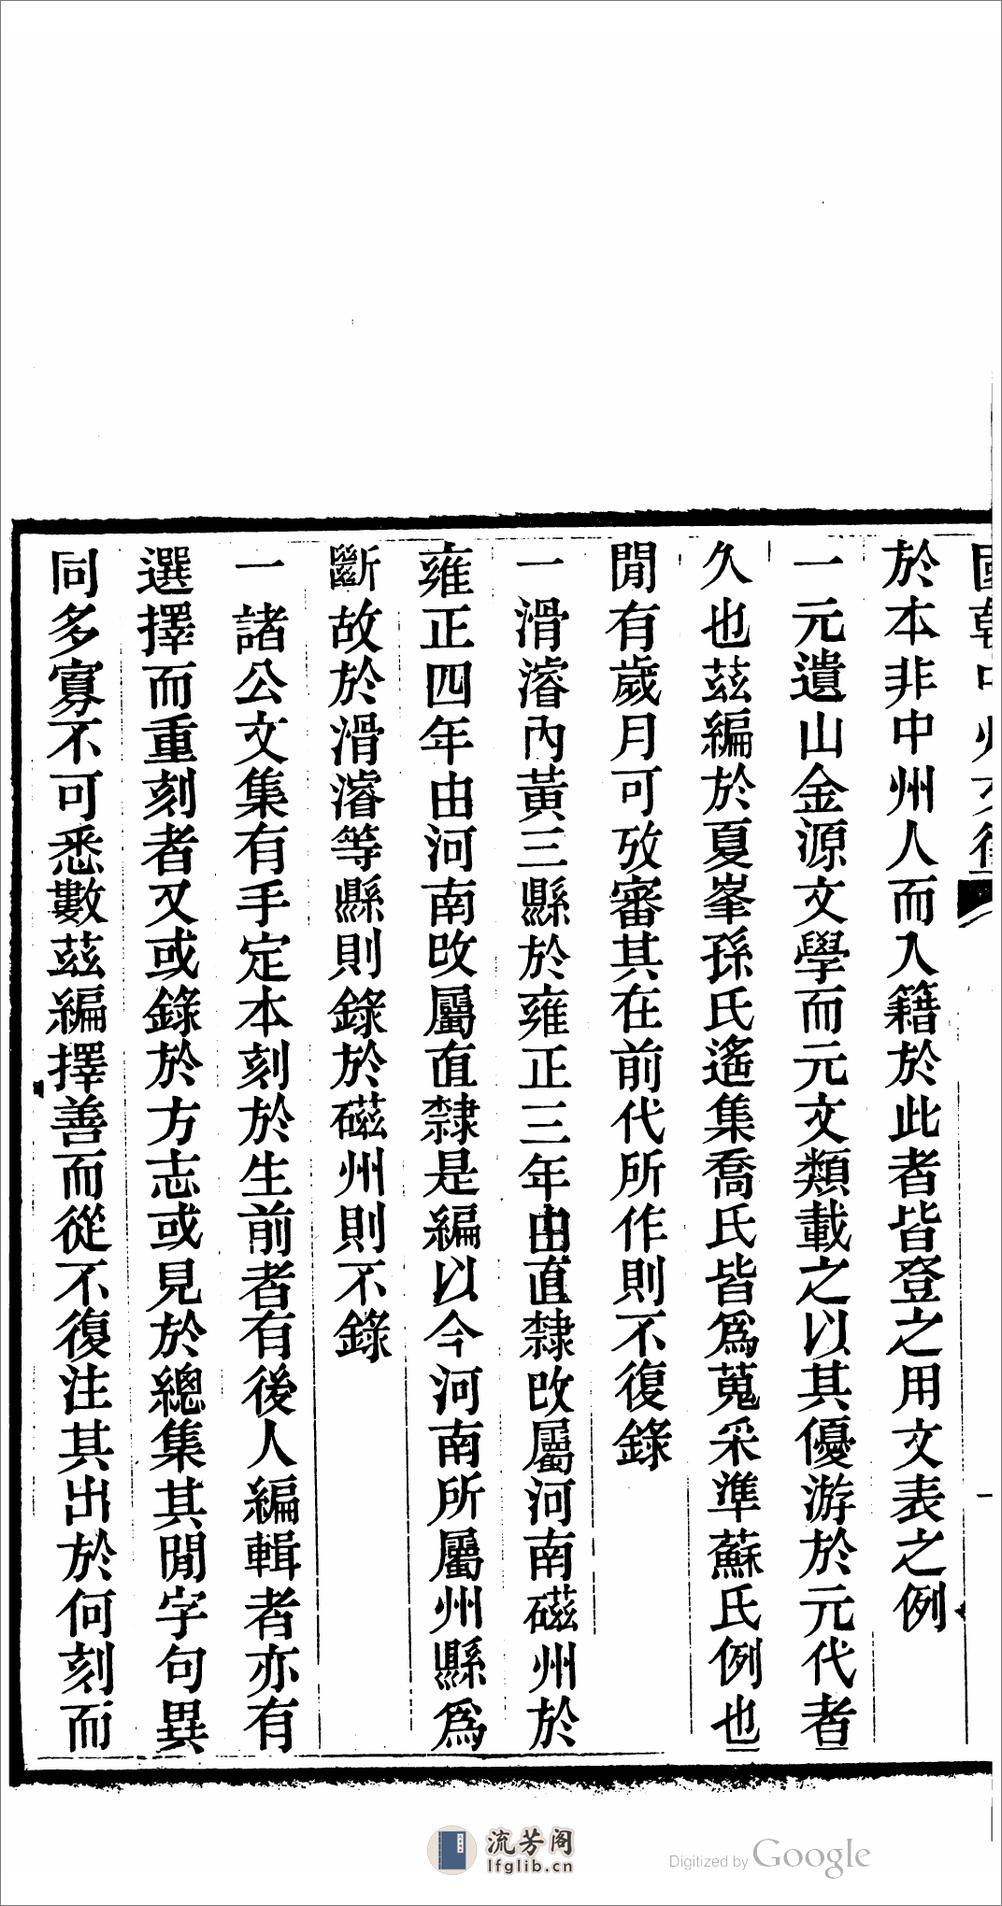 於本非中州人而入籍於此者皆登之用文表之例
一元遺山金源文學而元文類載之以其優游於元代者
久也茲編於夏峯孫氏遙集喬氏皆爲蒐采準蘇氏例也
閒有歲月可攷審其在前代所作則不復錄
一滑濬內黃三縣於雍正三年由直隸改屬河南磁州於
雍正四年由河南改屬直隸是編以今河南所屬州縣爲
斷故於滑濬等縣則錄於磁州則不錄
一諸公文集有手定本刻於生前者有後人編輯者亦有
選擇而重刻者又或錄於方志或見於總集其閒字句異
同多寡不可悉數茲編擇善而從不復注其出於何刻而
流芳阁
lfglib.cn
Digitized by Google